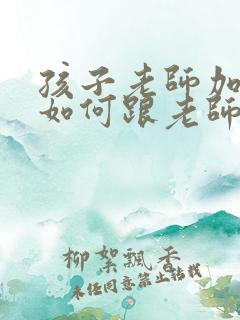 孩子老師加
如何跟老師
柳絮飄香
未經同意禁止轉載